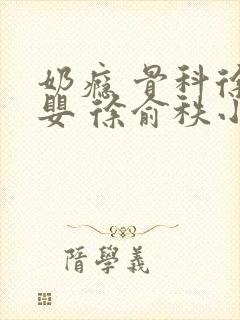 奶瘾 骨科徐
婴 徐俞秩小
隋學義